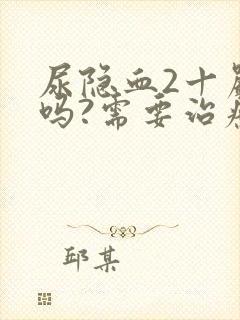 尿隐血2十
吗?需要治
邱某